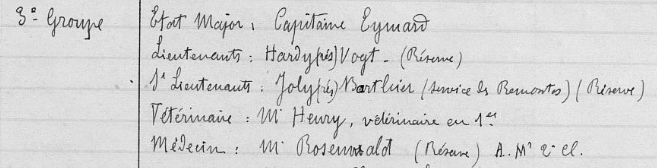 3e Groupe Etat Major : Capitaine Eymard
Lieutenants : Hardy (rés) Vogt - (Réserve)
S/s Lieutenants : Joly (rés) Barthier (service des Remontes) (Réserve)
Vétérinaire : Mr Henry, vétérinaire en 1er
Médecin : Mr Rosenwald (Réserve) A. Mr 2e Cl.